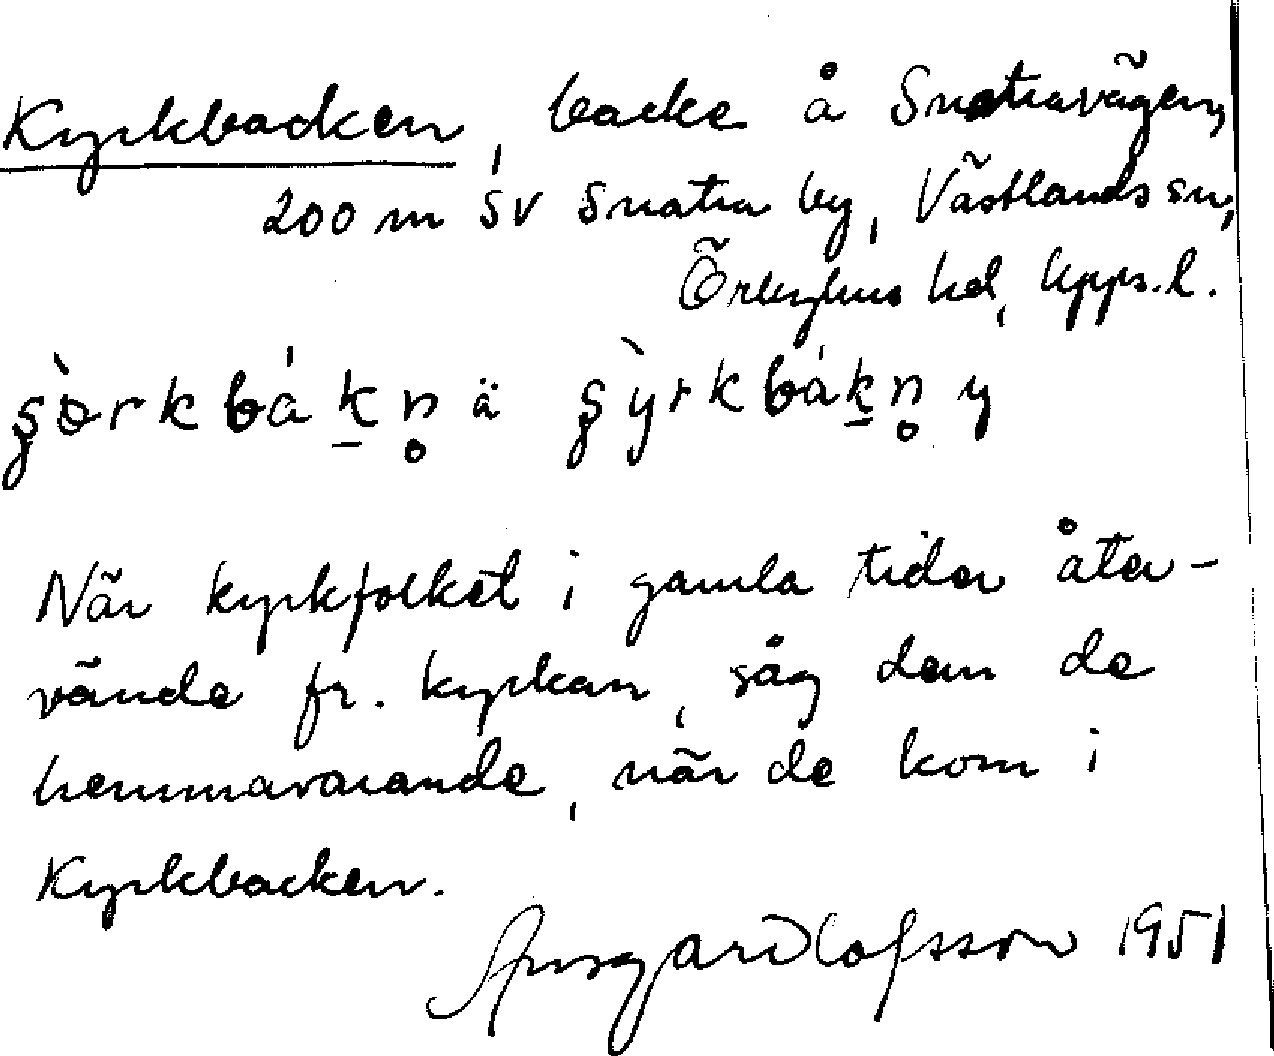 Kyrkbacken, backe å Snatravägen,
200 m SV Snatra by, Västlands sn,
Örbyhus hd, Upps. l.
ʂə̀rkbáḵn̥ ä ʂỳrkbáḵn̥ y
När kyrkfolket i gamla tider åter-
vände fr. kyrkan, såg dem de
hemmavarande, när de kom i
Kyrkbacken.
Ansgar Olofsson 1951